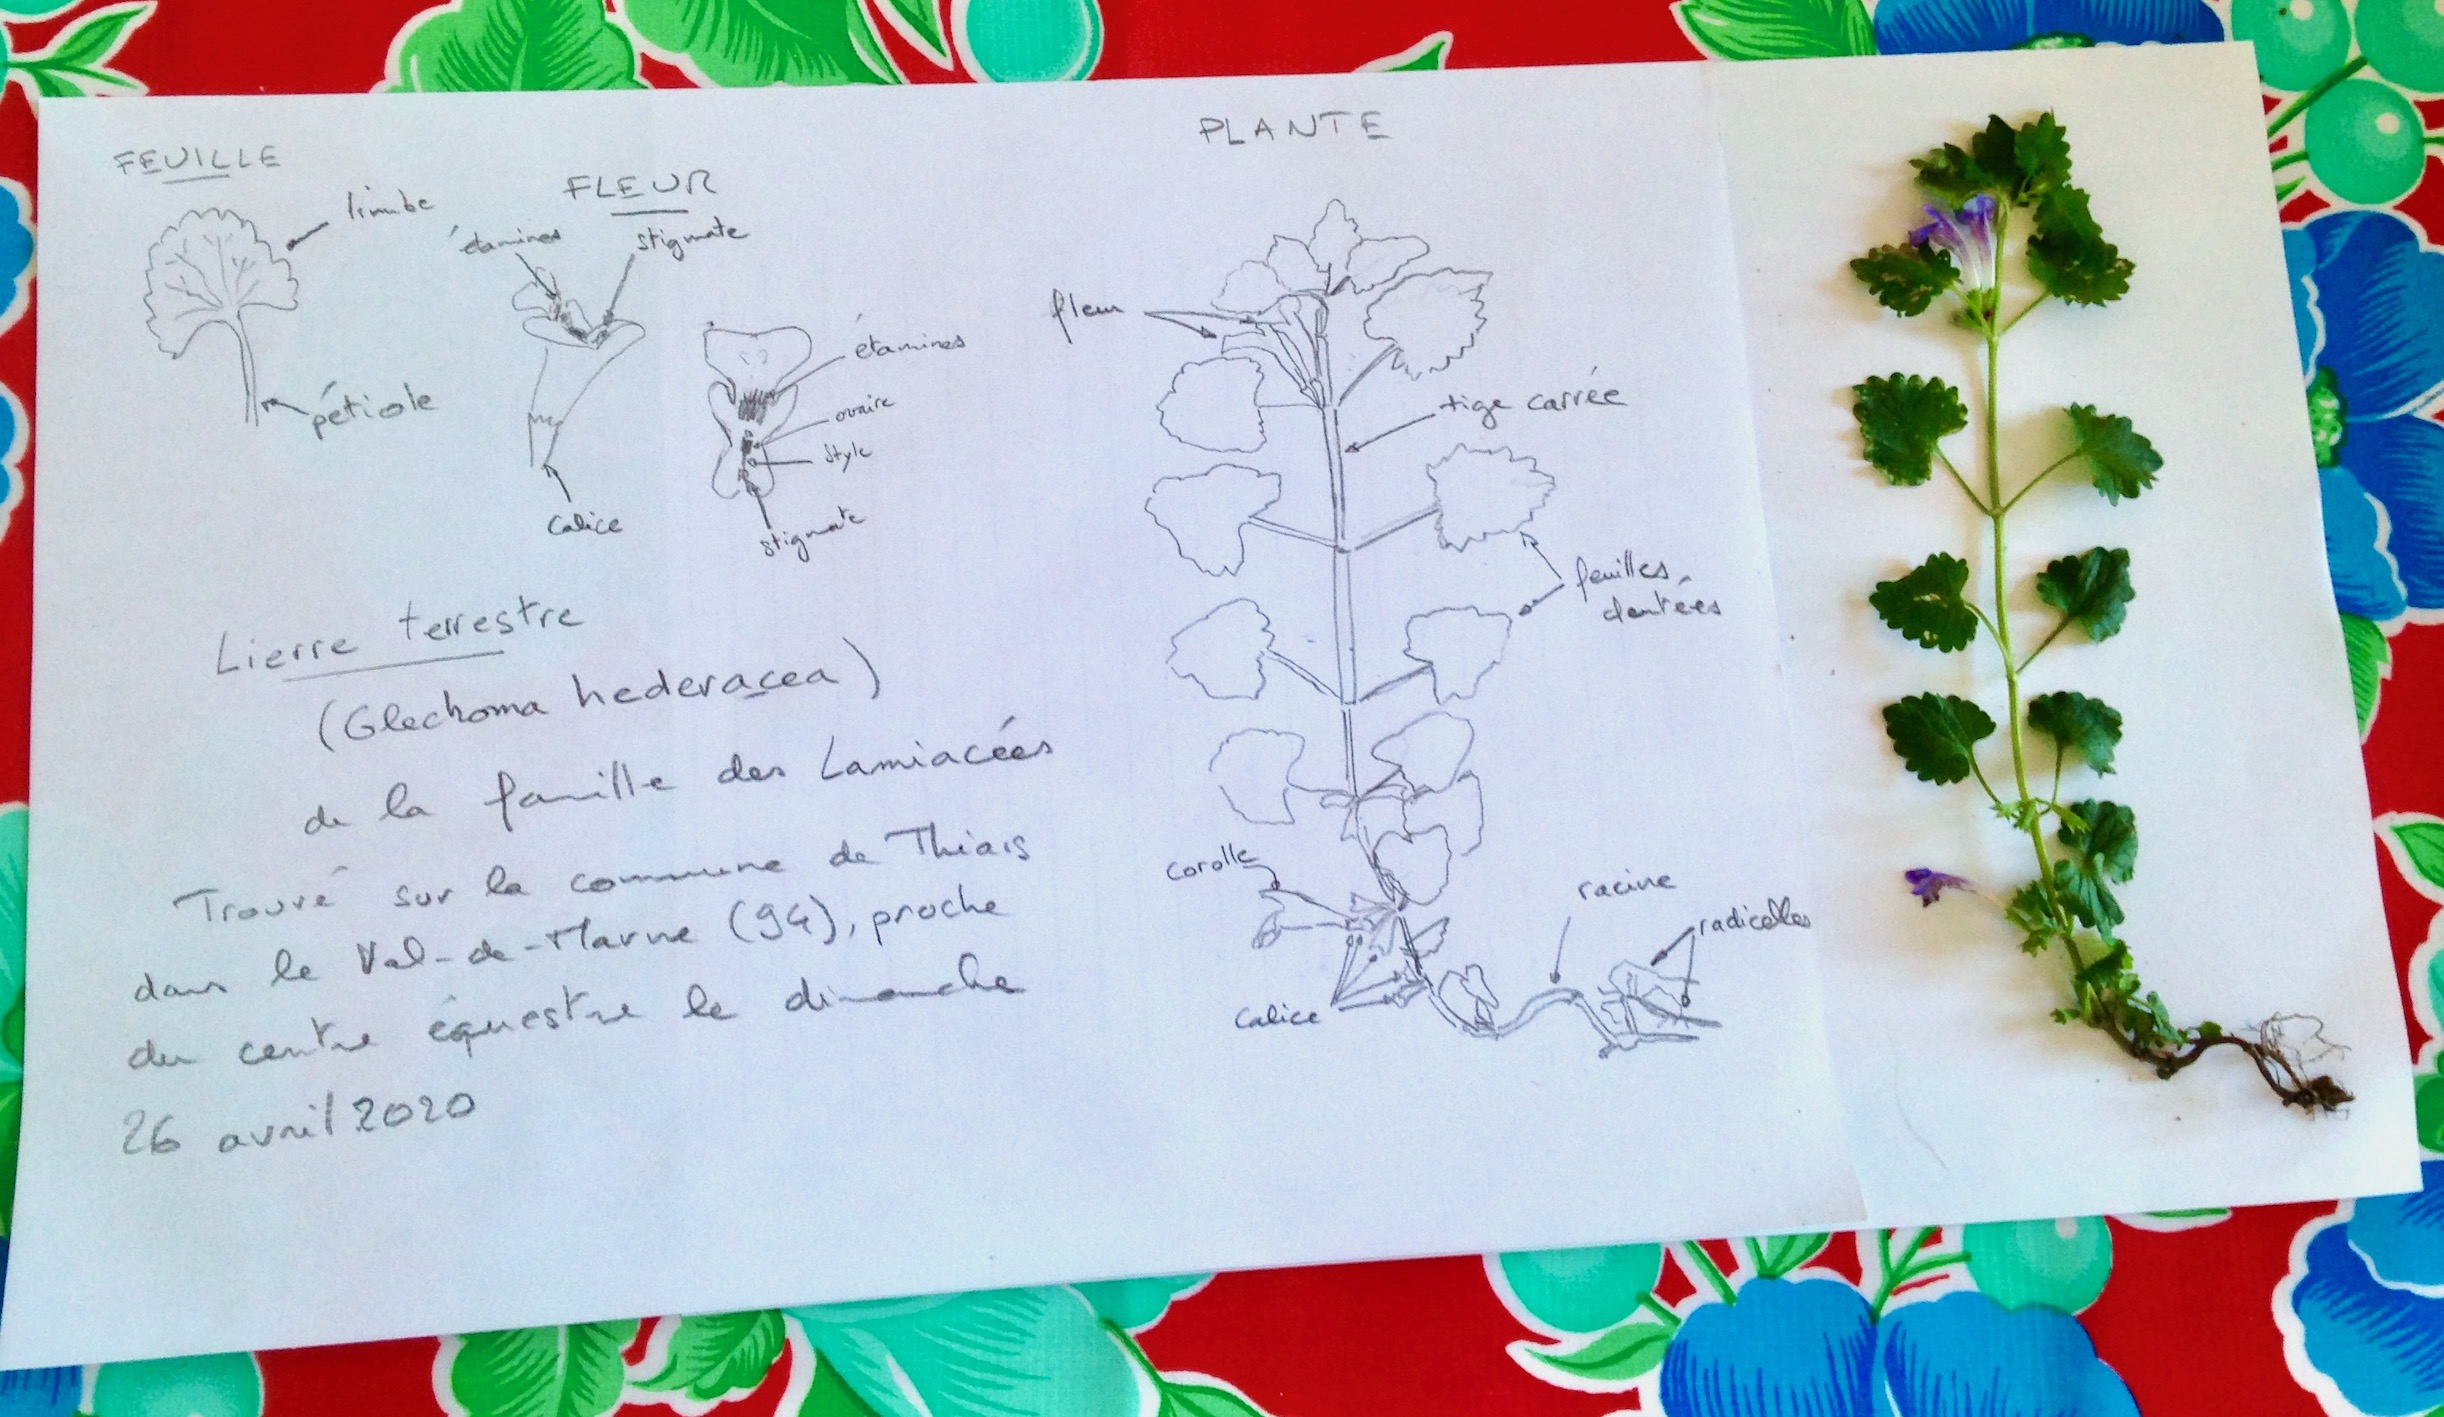 FEUILLE
limbe
pétiole
FLEUR
étamines
stigmate
calice
étamines
ovaire
style
stigmate
Lierre terrestre
(Glechoma hederacea)
de la famille des Lamiacées
Trouvé sur la commune de Thiais
dans le Val-de-Marne (94), proche
du centre équestre le dimanche
26 avril 2020
PLANTE
fleur
tige carrée
feuilles
dentées
corolle
calice
racine
radicelles